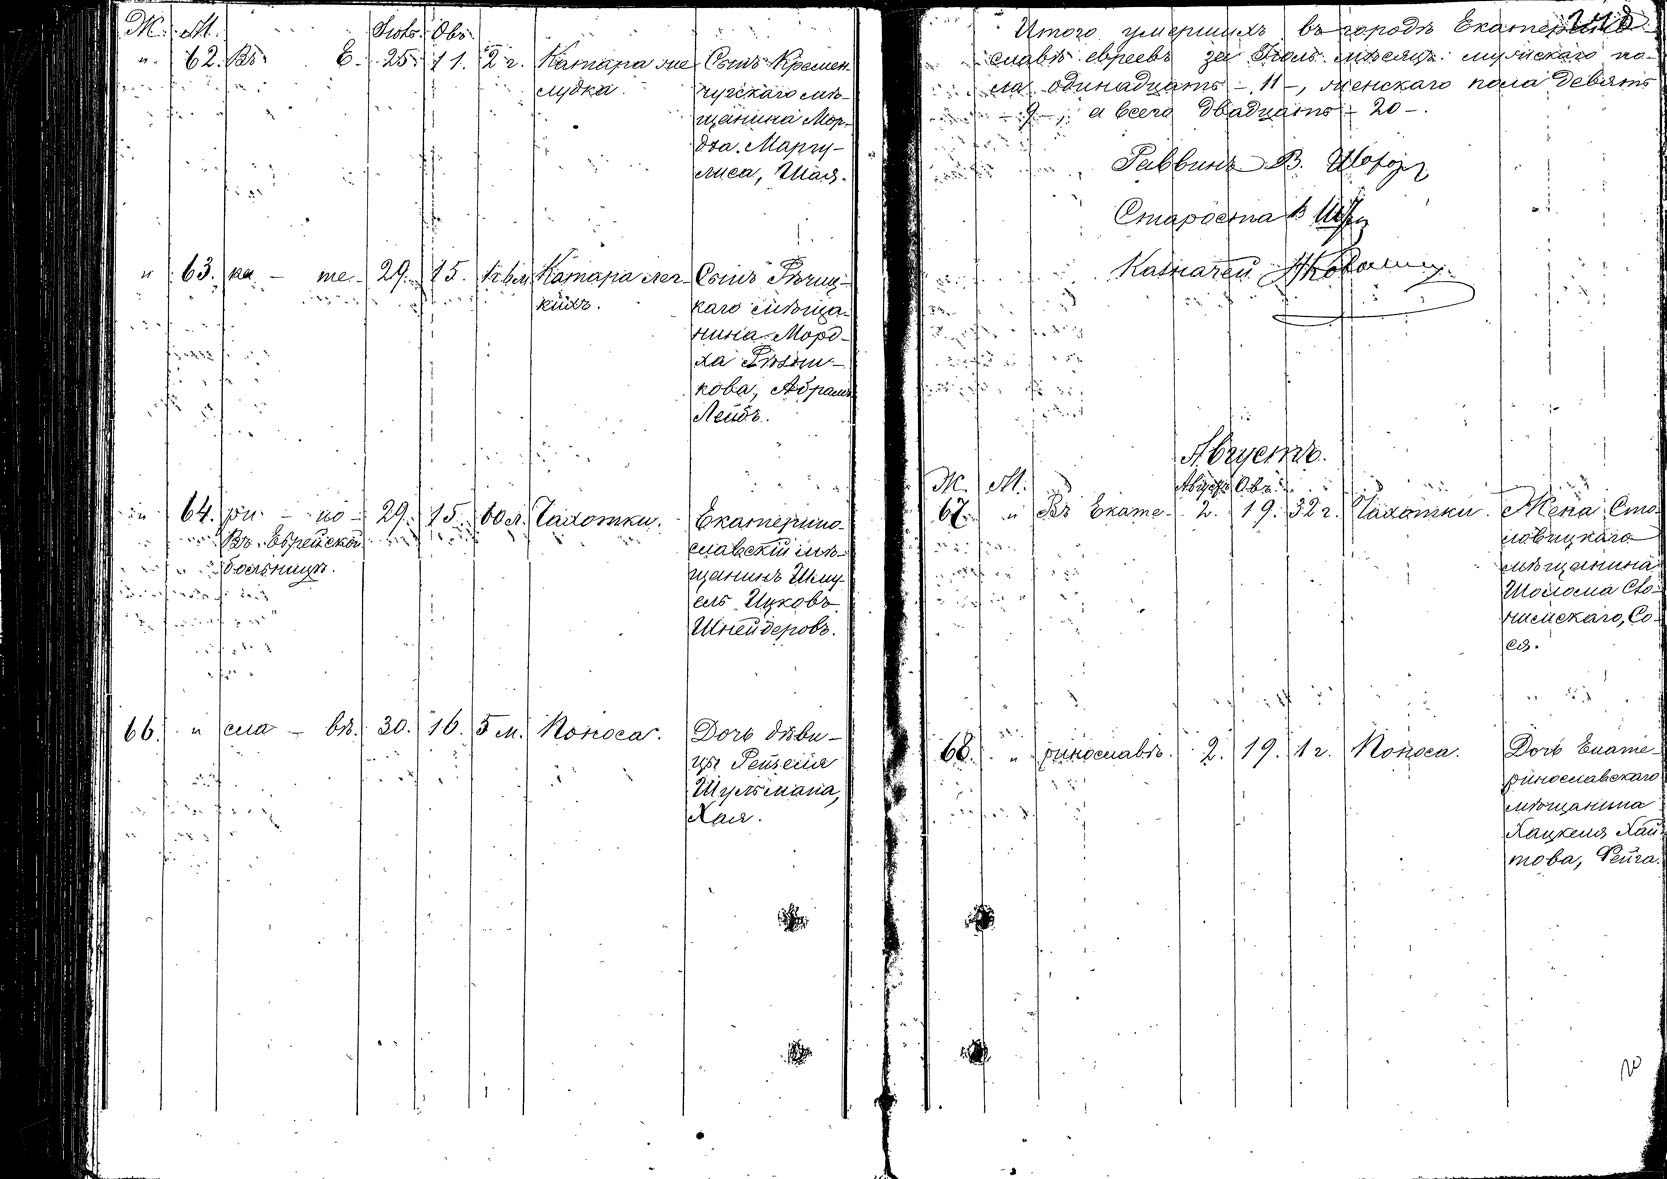 Ж. М. Іюль. Овъ.
" 62. Въ Е- 25. 11. 2 г. Катара же- Сынъ Кремен-
лудка. чугскаго мѣ-
щанина Мор-
дха Маргу-
лиса, Шая.
" 63. ка - те- 29. 15. Катара лег- Сынъ Рѣчиц-
кихъ. каго мѣща-
нина Морд-
ха
кова, Абрамъ
Лейбъ.
" 64. ри - но- 29. 15. 60 л. Чахотки. Екатерино-
Въ Еврейской славскій мѣ-
больницѣ. щанинъ Шму-
ель Ицковъ
Шнейдеровъ.
66. " сла - вѣ. 30. 16. 5 м. Поноса. Дочь дѣви-
цы Рейзеля
Шульмана,
Хая.
Итого умершихъ въ городѣ Екатерино-
славѣ евреевъ за Іюль мѣсяцъ: мужскаго по-
ла одинадцать - 11 -, женскаго пола девять
- 9 -, а всего двадцать - 20 -.
Раввинъ В. Шорр
Староста В
Казначей
Августъ.
Ж. М. Августъ Овъ.
67. " Въ Екате- 2. 19. 32 г. Чахотки. Жена Сто-
ловицкаго
мѣщанина
Шолома Сло-
нимскаго, Со-
ся.
68. " ринославѣ. 2. 19. 1 г. Поноса. Дочь Екате-
ринославскаго
мѣщанина
Хацкеля Хаи-
това, Фейга.